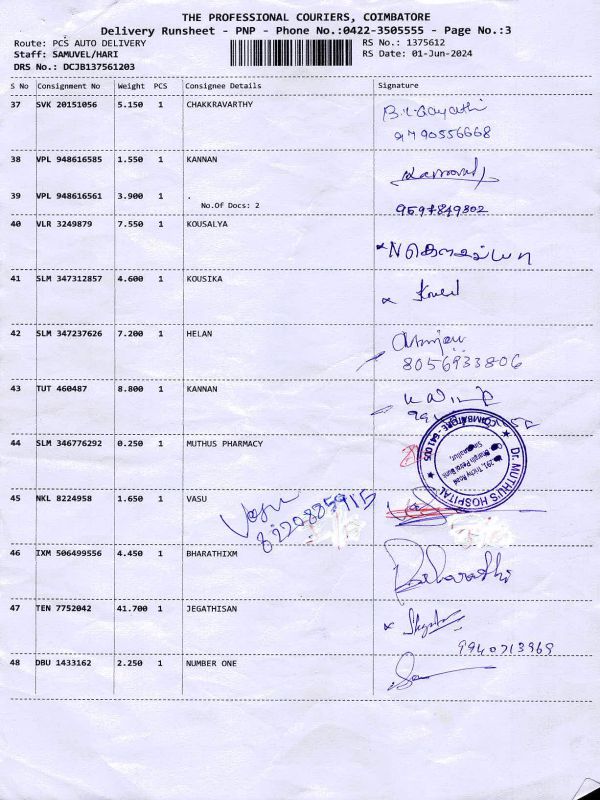 THE PROFESSIONAL COURIERS, COIMBATORE
Delivery Runsheet - PNP - Phone No.:0422-3505555 - Page No.:3
Route: PCS AUTO DELIVERY
RS No.: 1375612
Staff: SAMUVEL/HARI
RS Date: 01-Jun-2024
DRS No.: DCJB137561203
S No Consignment No Weight PCS Consignee Details Signature
37 SVK 20151056 5.150 1 CHAKKRAVARTHY
9790556668
38 VPL 948616585 1.550 1 KANNAN
39 VPL 948616561 3.900 1 .
No.Of Docs: 2
9597849802
40 VLR 3249879 7.550 1 KOUSALYA
41 SLM 347312857 4.600 1 KOUSIKA
42 SLM 347237626 7.200 1 HELAN
8056933806
43 TUT 460487 8.800 1 KANNAN
44 SLM 346776292 0.250 1 MUTHUS PHARMACY
Dr. MUTHU'S HOSPITAL
COIMBATORE - 641 005
391, Trichy Road
Singanallur,
45 NKL 8224958 1.650 1 VASU
Vasu
8220885915
46 IXM 506499556 4.450 1 BHARATHIXM
Bharathi
47 TEN 7752042 41.700 1 JEGATHISAN
9940713969
48 DBU 1433162 2.250 1 NUMBER ONE